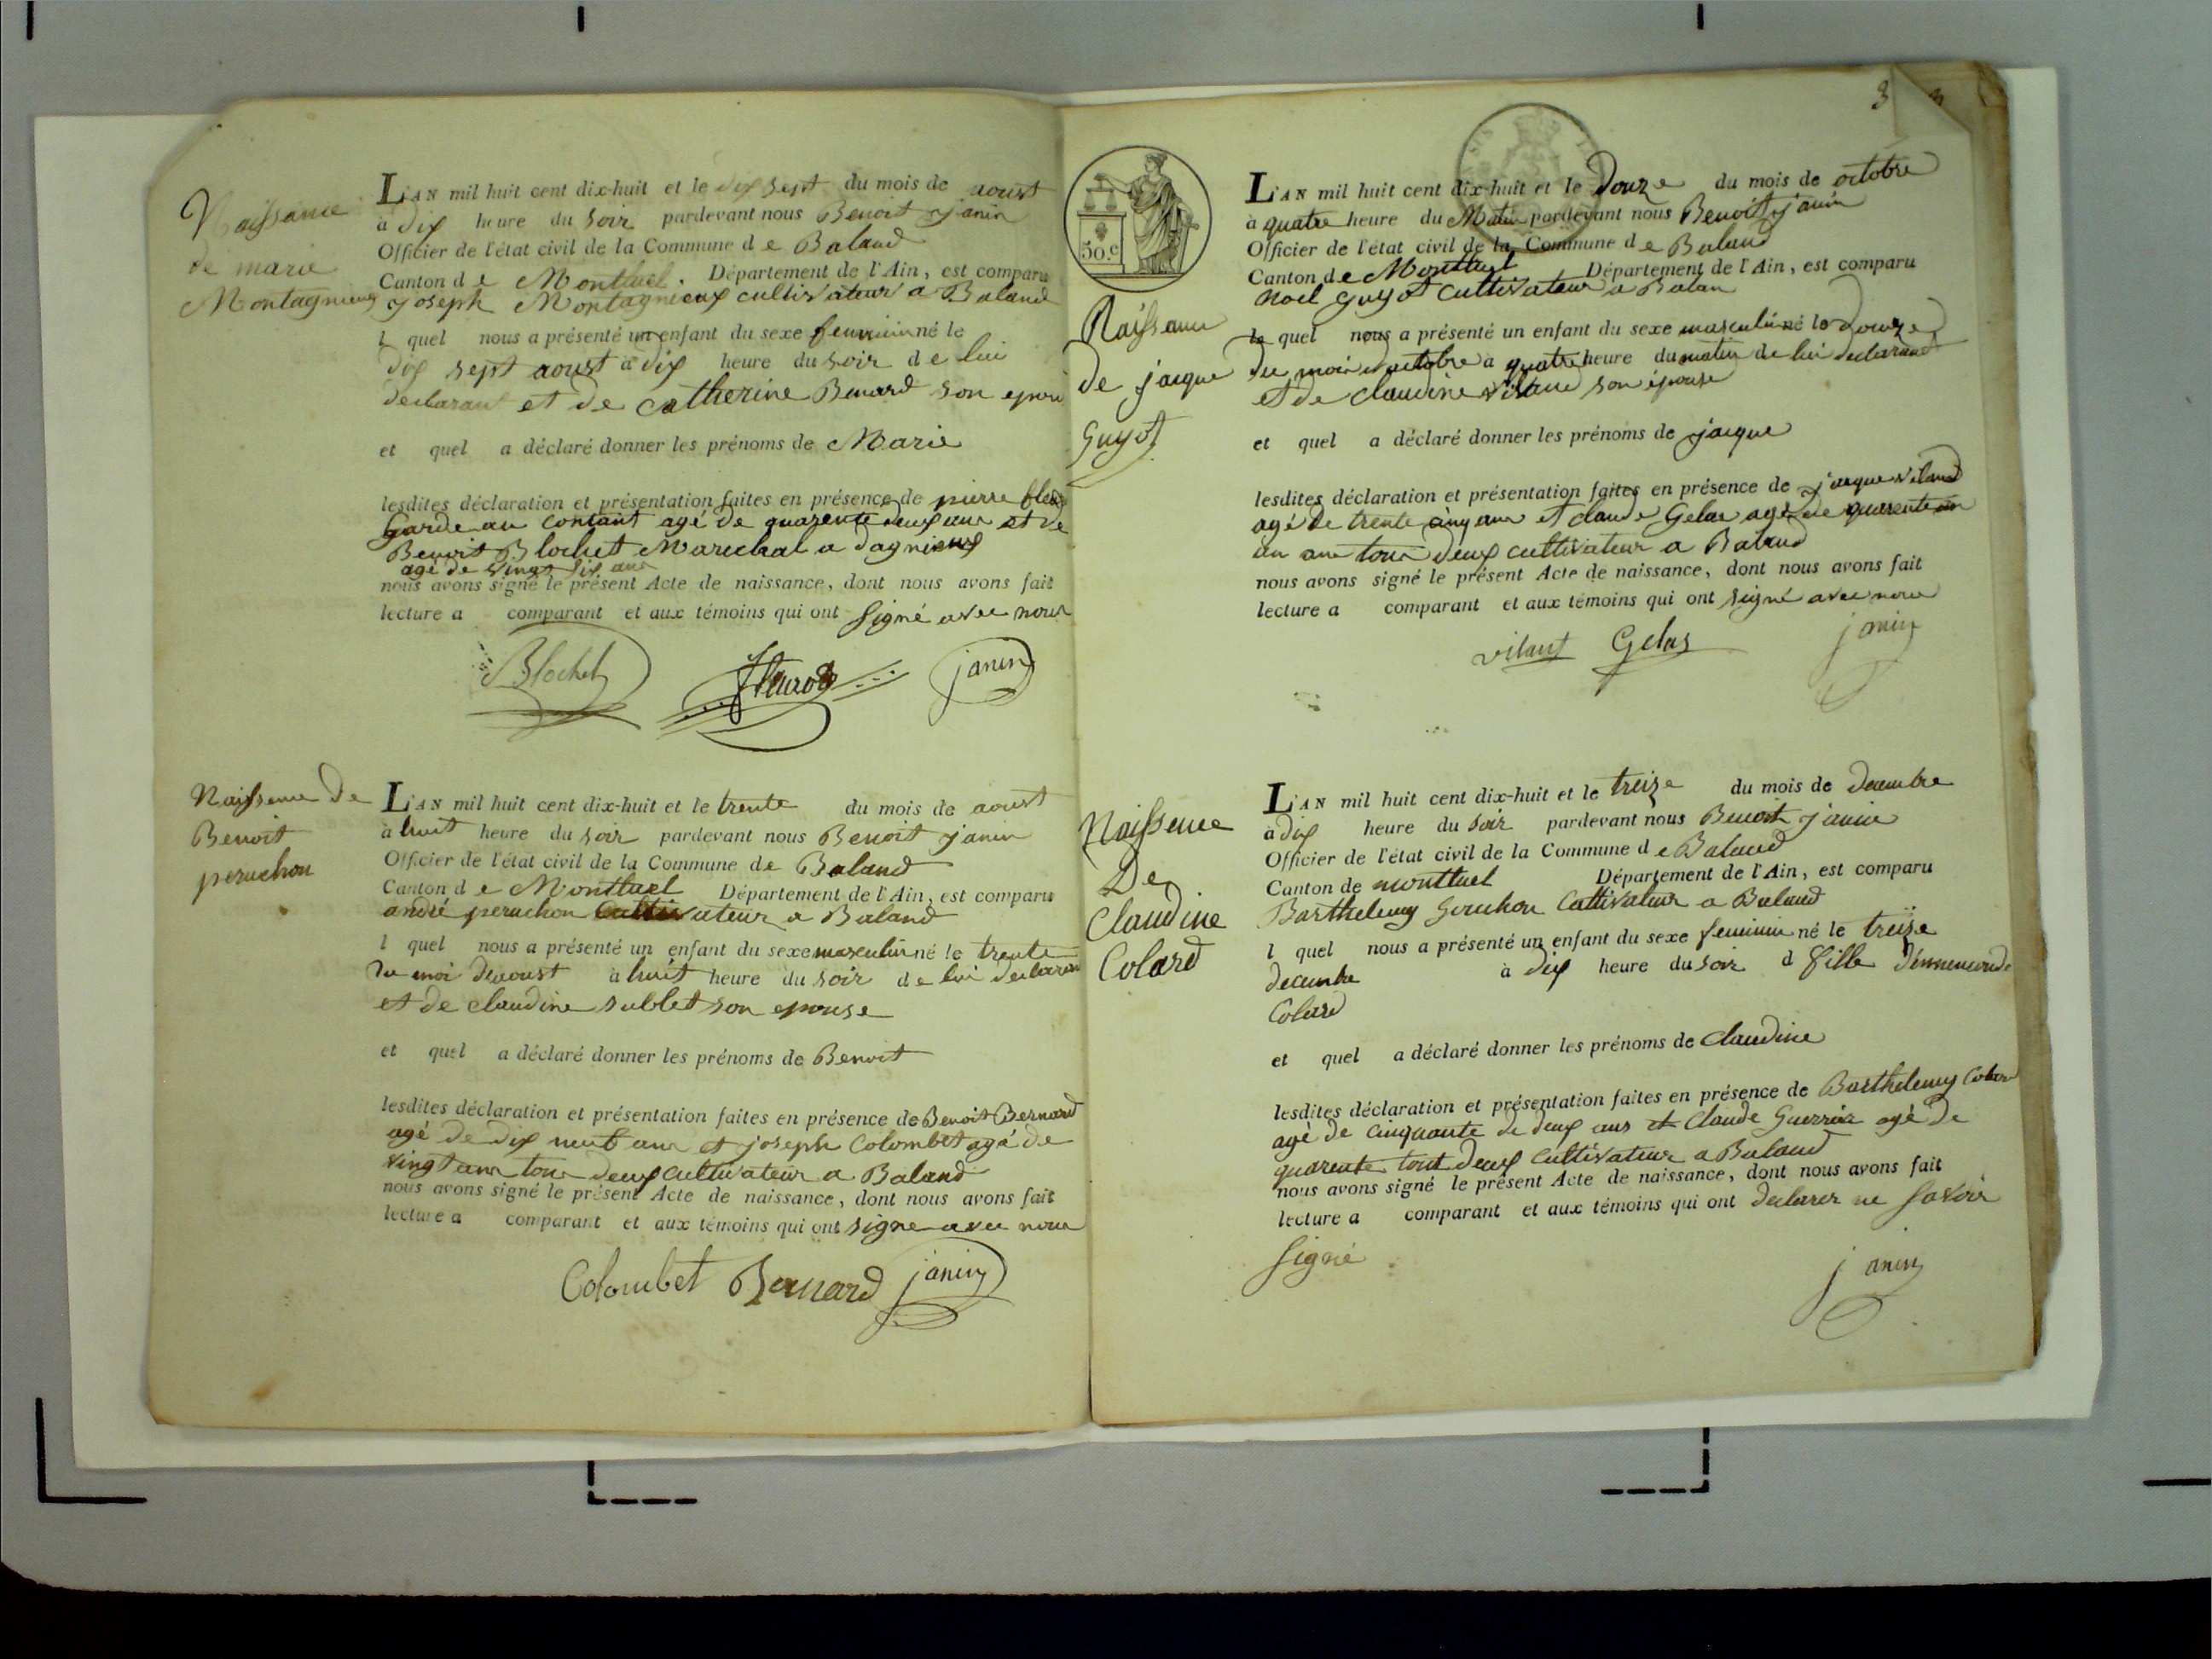 Naissance
de marie
Montagnieux
L'AN mil huit cent dix-huit et le dix sept du mois de aoust
à dix heure du soir pardevant nous Benoit janin
Officier de l'état civil de la Commune de Baland
Canton de Montluel. Département de l'Ain, est comparu
joseph Montagnieux cultivateur a Baland
l quel nous a présenté un enfant du sexe feminin né le
dix sept aoust à dix heure du soir de lui
declarant et de catherine Benard son epou
et quel a déclaré donner les prénoms de Marie
lesdites déclaration et présentation faites en présence de pierre
Garde au contant agé de quarente deux ans et de
Benoit Blochet Marechal a dagnieux
agé de vingt six ans
nous avons signé le présent Acte de naissance, dont nous avons fait
lecture a comparant et aux témoins qui ont signé avec nous
Blochet janin
Naissence de
Benoit
peruchon
L'AN mil huit cent dix-huit et le trente du mois de aoust
à huit heure du soir pardevant nous Benoit janin
Officier de l'état civil de la Commune de Baland
Canton de Montluel Département de l'Ain, est comparu
andré peruchon Cultivateur a Baland
l quel nous a présenté un enfant du sexe masculin né le trente
du moi deaoust à huit heure du soir de lui declaran
et de claudine sublet son epouse
et quel a déclaré donner les prénoms de Benoit
lesdites déclaration et présentation faites en présence de Benoit Bernard
agé de dix neuf ans et joseph Colombet agé de
vingt ans tous deux cultivateur a Baland
nous avons signé le présent Acte de naissance, dont nous avons fait
lecture a comparant et aux témoins qui ont signe avec nous
Colombet Bernard janin
3
50.c
Naissance
de jacque
Guyot
L'AN mil huit cent dix-huit et le Douze du mois de octobre
à quatre heure du Matin pardevant nous Benoit janin
Officier de l'état civil de la Commune de Baland
Canton de Montluel Département de l'Ain, est comparu
Noel guyot cultivateur a Balan
le quel nous a présenté un enfant du sexe masculin né le douze
du moi d'octobre à quatre heure du matin de lui declarant
et de claudine viland son épouse
et quel a déclaré donner les prénoms de jacque
lesdites déclaration et présentation faites en présence de jacque viland
agé de trente cinq ans et claude Gelas agé de quarente un
un ans tous deux cultivateur a Baland
nous avons signé le présent Acte de naissance, dont nous avons fait
lecture a comparant et aux témoins qui ont signé avec nous
vilant Gelas janin
Naissence
De
Claudine
Colard
L'AN mil huit cent dix-huit et le treize du mois de decembre
à dix heure du soir pardevant nous Benoit janin
Officier de l'état civil de la Commune de Baland
Canton de montluel Département de l'Ain, est comparu
Barthelemy Cultivateur a Baland
l quel nous a présenté un enfant du sexe feminin né le treize
decembre à dix heure du soir d fille
Colard
et quel a déclaré donner les prénoms de Claudine
lesdites déclaration et présentation faites en présence de Barthelemy
agé de cinquante de deux ans et Claude Guerrier agé de
quarente tout deux cultivateur a Baland
nous avons signé le présent Acte de naissance, dont nous avons fait
lecture a comparant et aux témoins qui ont declarer ne savoir
signé
janin